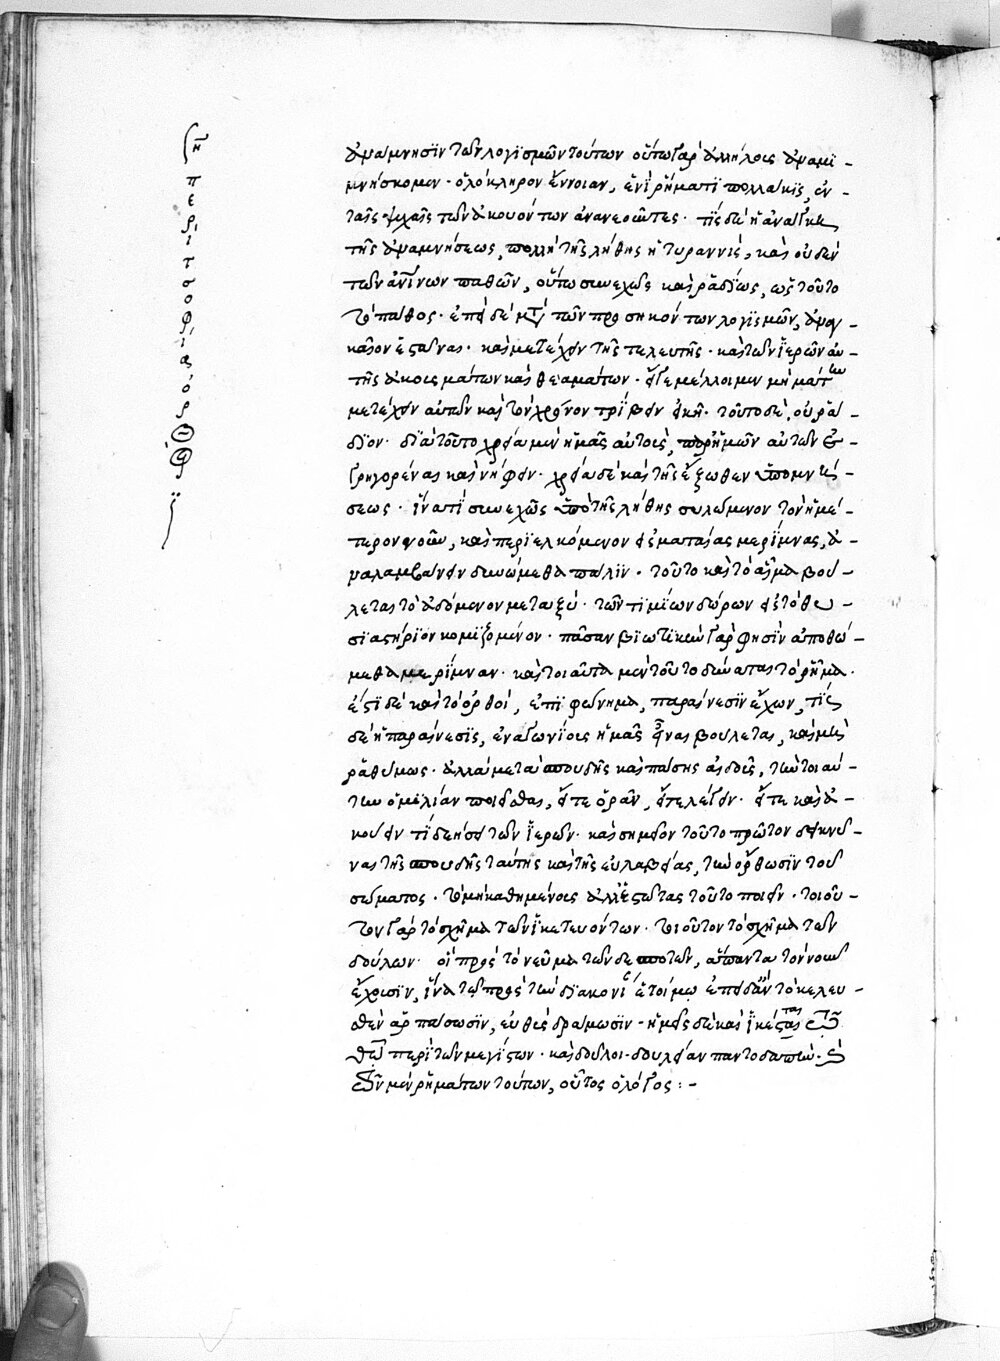 ἀνάμνησιν τῶν λογισμῶν τούτων οὕτω γὰρ ἀλλήλοις ἀναμι-
μνήσκομεν· ὁλόκληρον ἔννοιαν, ἑνὶ ῥήματι πολλάκις, ἐν
ταῖς ψυχαῖς τῶν ἀκουόντων ἀνανεοῦντες· τίς δὲ ἡ ἀνάγκη
τῆς ἀναμνήσεως, πολλὴ τῆς λήθης ἡ τυραννίς, καὶ οὐδὲν
τῶν ἀνίνων παθῶν, οὕτω συνεχῶς καὶ ῥαδίως, ὡς τοῦτο
τὸ πάθος· ἐπεὶ δὲ μετὰ τῶν προσηκόντων λογισμῶν, ἀναγ-
καῖον ἑστάναι· καὶ μετέχειν τῆς τελευτῆς· καὶ τῶν ἱερῶν αὐ-
τῆς ἀκουσμάτων καὶ θεαμάτων· εἴγε μέλλοιμεν μὴ μάτην
μετέχειν αὐτῶν καὶ τὸν χρόνον τρίβειν εἰκῆ· τοῦτο δὲ, οὐ ῥά-
διον· διὰ τοῦτο χρεία μὲν ἡμᾶς αὐτοὺς, παρ' ἡμῶν αὐτῶν ἐ-
γρηγορέναι καὶ νήφειν· χρεία δὲ καὶ τῆς ἔξωθεν ὑπομνή-
σεως· ἵνα τι συνεχῶς ὑπὸ τῆς λήθης συλώμενον τὸν ἡμέ-
τερον νοῦν, καὶ περιελκόμενον εἰς ματαίας μερίμνας, ἀ-
ναλαμβάνειν δυνώμεθα πάλιν· τοῦτο καὶ τὸ ᾆσμα βού-
λεται τὸ ἀδόμενον μεταξὺ· τῶν τιμίων δώρων εἰς τὸ θυ-
σιαστήριον κομιζομένον· πᾶσαν βιωτικὴν γὰρ φησὶν ἀποθώ-
μεθα μέριμναν· καὶ τοιαῦτα μὲν τοῦτο δύναται τὸ ῥῆμα·
ἔστι δὲ καὶ τὸ ὀρθοὶ, ἐπιφώνημα, παραίνεσιν ἔχων, τίς
δὲ ἡ παραίνεσις, ἐναγωνίους ἡμᾶς εἶναι βούλεται, καὶ μὴ
ῥαθύμως· ἀλλὰ μετὰ σπουδῆς καὶ πάσης αἰδοῦς, τὴν τοιαύ-
την ὁμιλίαν ποιεῖσθαι, εἴτε ὁρᾶν, εἰ τελεῖν δεῖ· εἴτε καὶ ἀ-
κούειν τί δεήσει τῶν ἱερῶν· καὶ σημεῖον τοῦτο πρῶτον δεικνύ-
ναι τῆς σπουδῆς ταύτης καὶ τῆς εὐλαβείας, τὴν ὄρθωσιν τοῦ
σώματος· τὸ μὴ καθημένους ἀλλ' ἑστῶτας τοῦτο ποιεῖν· τοιοῦ-
τον γὰρ τὸ σχῆμα τῶν ἱκετευόντων· τοιοῦτον τὸ σχῆμα τῶν
δούλων· οἳ πρὸς τὸ νεῦμα τῶν δεσποτῶν, ἅπαντα τὸν νοῦν
ἔχουσιν, ἵνα τῶ πρὸς τὴν διακονίαν ἑτοίμω ἐπειδὰν τὸ κελευ-
σθὲν ἁρπάσωσιν, εὐθὺς δράμωσιν· ἡμεῖς δὲ καὶ ἱκέται ἐσμὲν τοῦ
θεοῦ περὶ τῶν μεγίστων· καὶ δοῦλοι δουλείαν παντοδαπὴν· καὶ
τῶν μὲν ῥημάτων τούτων, οὗτος ὁ λόγος : -